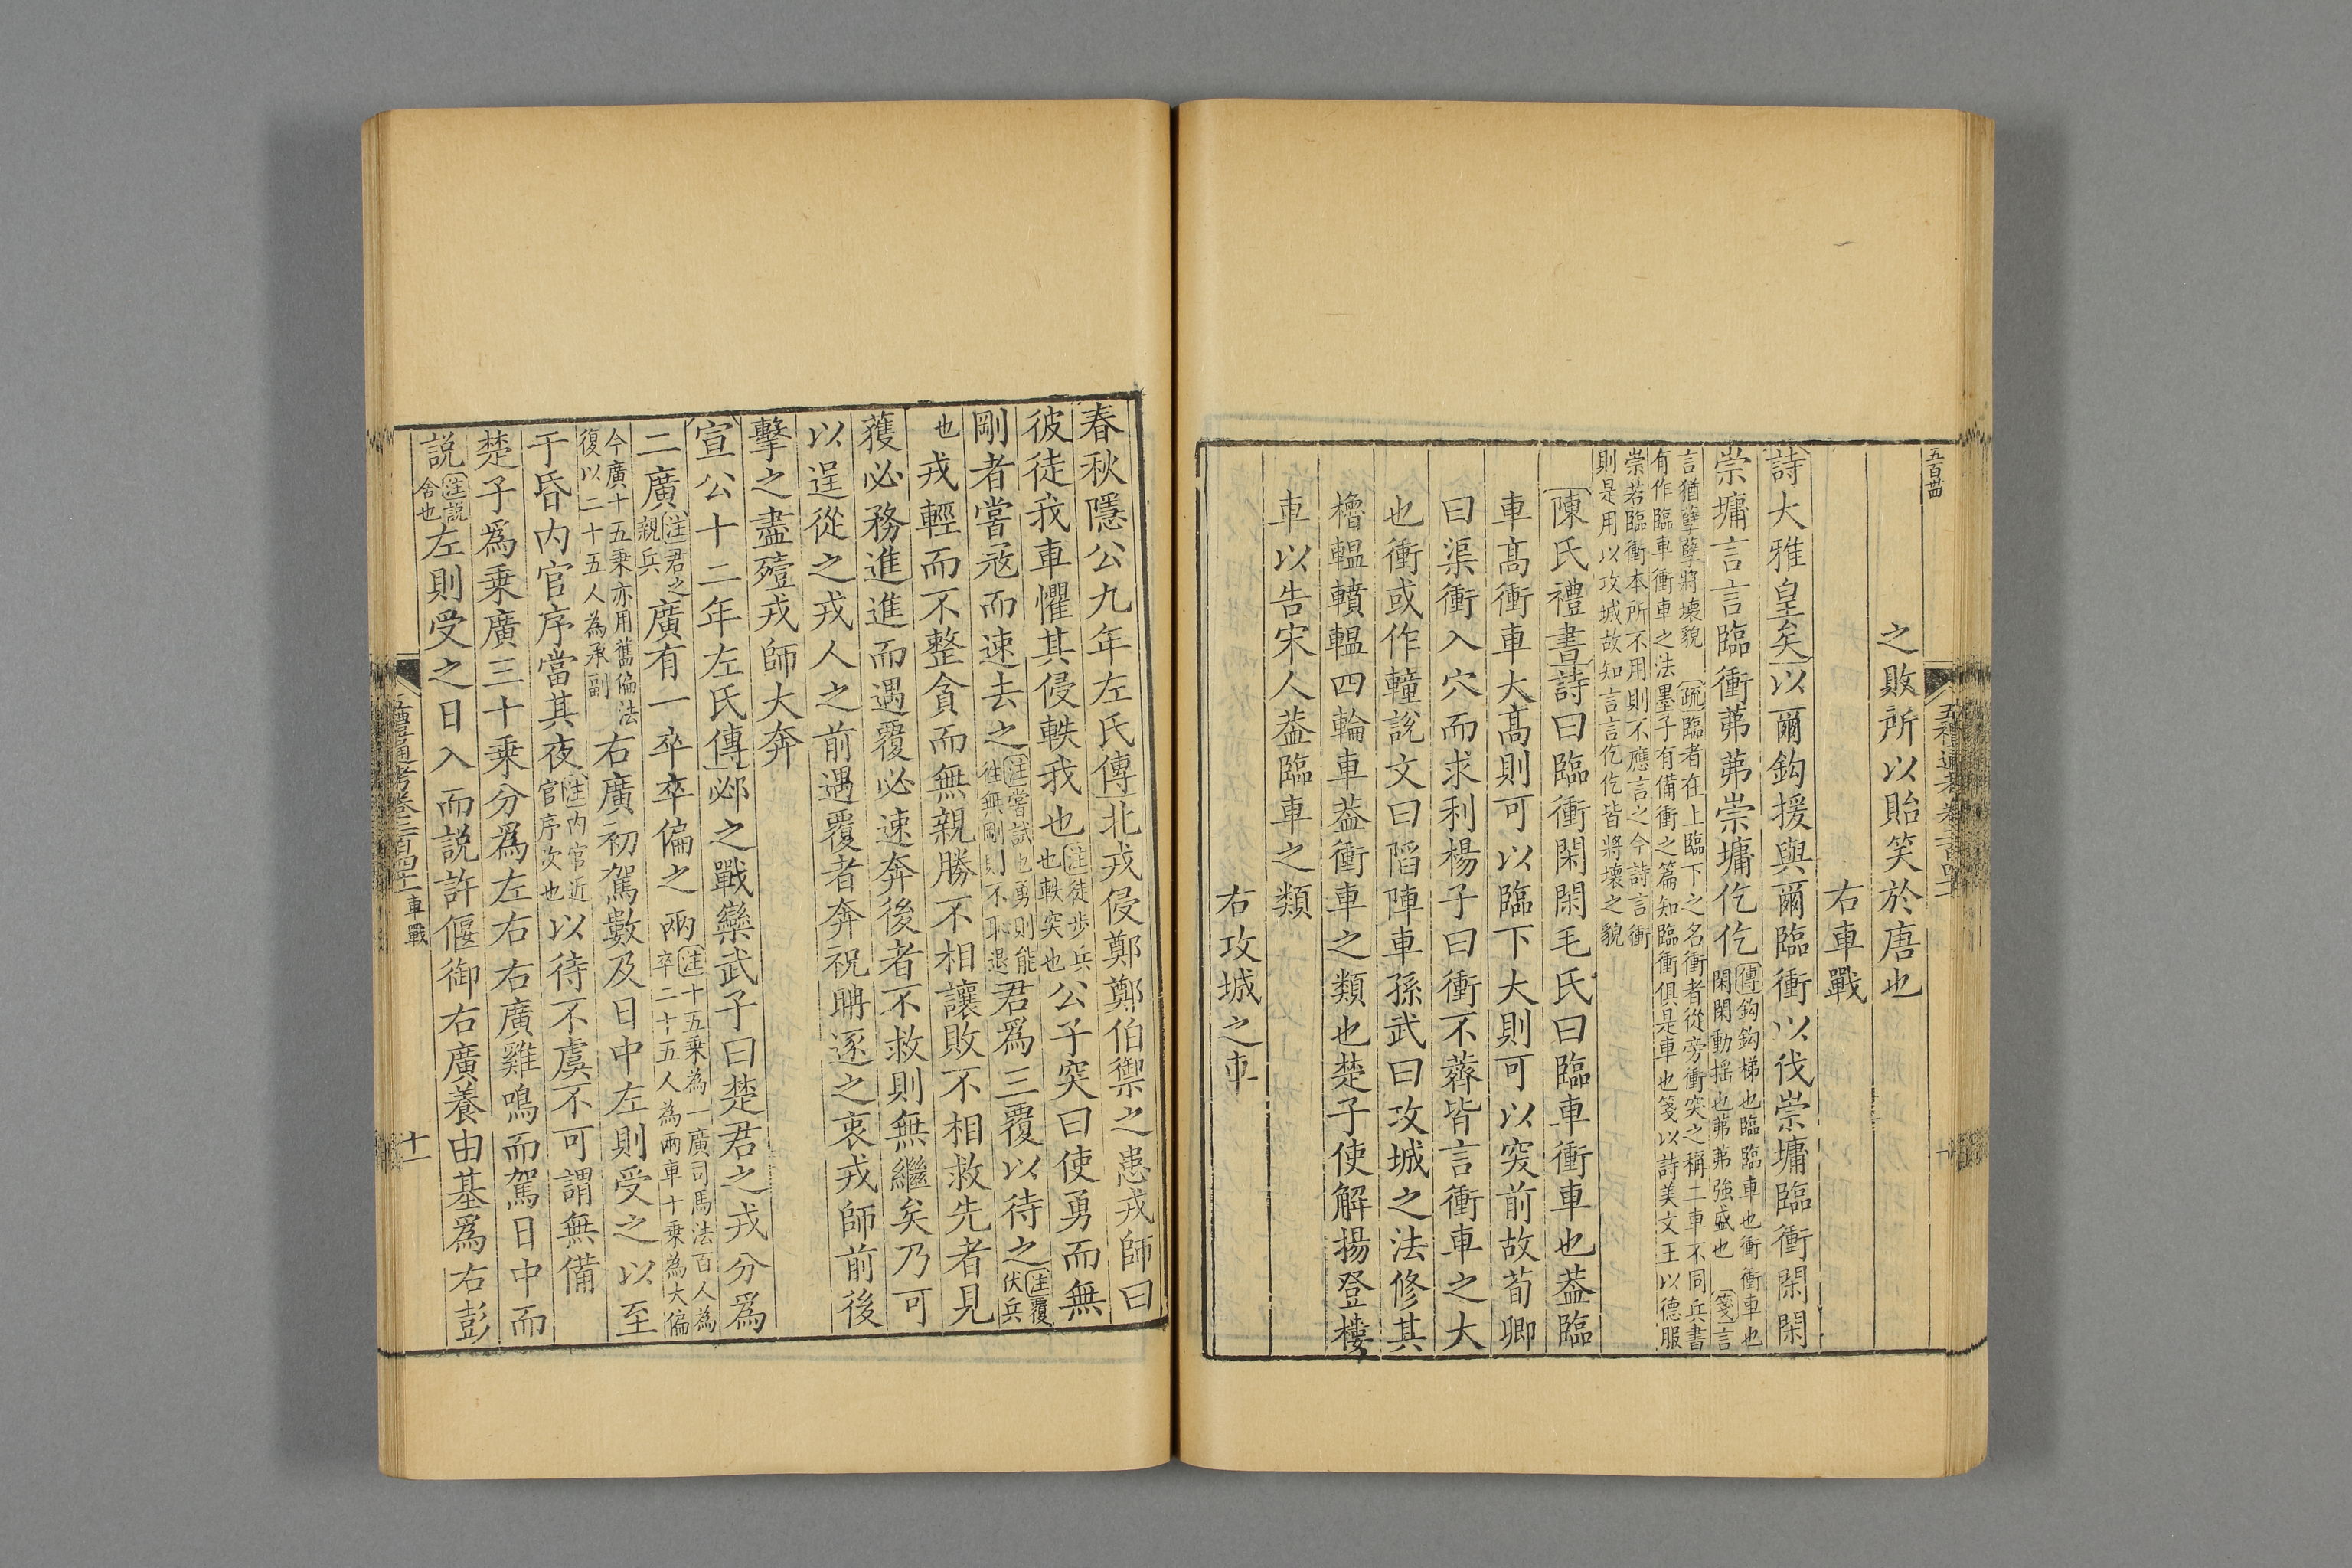 五百苗
五禮通考卷二百四十一
之敗所以貽笑於唐也
右車戰
詩大雅皇矣以爾鈎援與爾臨衝以伐崇墉臨衝閑閑
崇墉言言臨衝茀茀崇墉仡仡傳鈎鈎梯也臨臨車也衝衝車也
閑閑動揺也茀茀強盛也箋言
言猶孽孽將壞貌疏臨者在上臨下之名衝者從旁衝突之稱二車不同兵書
有作臨車衝車之法墨子有備衝之篇知臨衝俱是車也箋以詩美文王以德服
崇若臨衝本所不用則不應言之今詩言衝
則是用以攻城故知言言仡仡皆將壞之貌
陳氏禮書詩曰臨衝閑閑毛氏曰臨車衝車也葢臨
車髙衝車大髙則可以臨下大則可以突前故荀卿
曰渠衝入穴而求利楊子曰衝不薺皆言衝車之大
也衝或作䡴說文曰䧟陣車孫武曰攻城之法修其
櫓轀轒轀四輪車葢衝車之類也楚子使解揚登樓
車以告宋人葢臨車之類
右攻城之車
春秋隱公九年左氏傳北戎侵鄭鄭伯禦之患戎師曰
彼徒我車懼其侵軼我也注徒步兵
也軼突也公子突曰使勇而無
剛者嘗寇而速去之注嘗試也勇則能
往無剛則不恥退君爲三覆以待之注覆
伏兵
也戎輕而不整貪而無親勝不相讓敗不相救先者見
獲必務進進而遇覆必速奔後者不救則無繼矣乃可
以逞從之戎人之前遇覆者奔祝聃逐之衷戎師前後
擊之盡殪戎師大奔
宣公十二年左氏傳邲之戰欒武子曰楚君之戎分爲
二廣注君之
親兵廣有一卒卒偏之兩注十五乘為一廣司馬法百人為
卒二十五人為兩車十乘為大偏
今廣十五乘亦用舊偏法
復以二十五人為承副右廣初駕數及日中左則受之以至
于昏内官序當其夜注内官近
官序次也以待不虞不可謂無備
楚子爲乘廣三十乘分爲左右右廣雞鳴而駕日中而
説注説
舍也左則受之日入而説許偃御右廣養由基爲右彭
五禮通考卷二百四十一車戰
十一